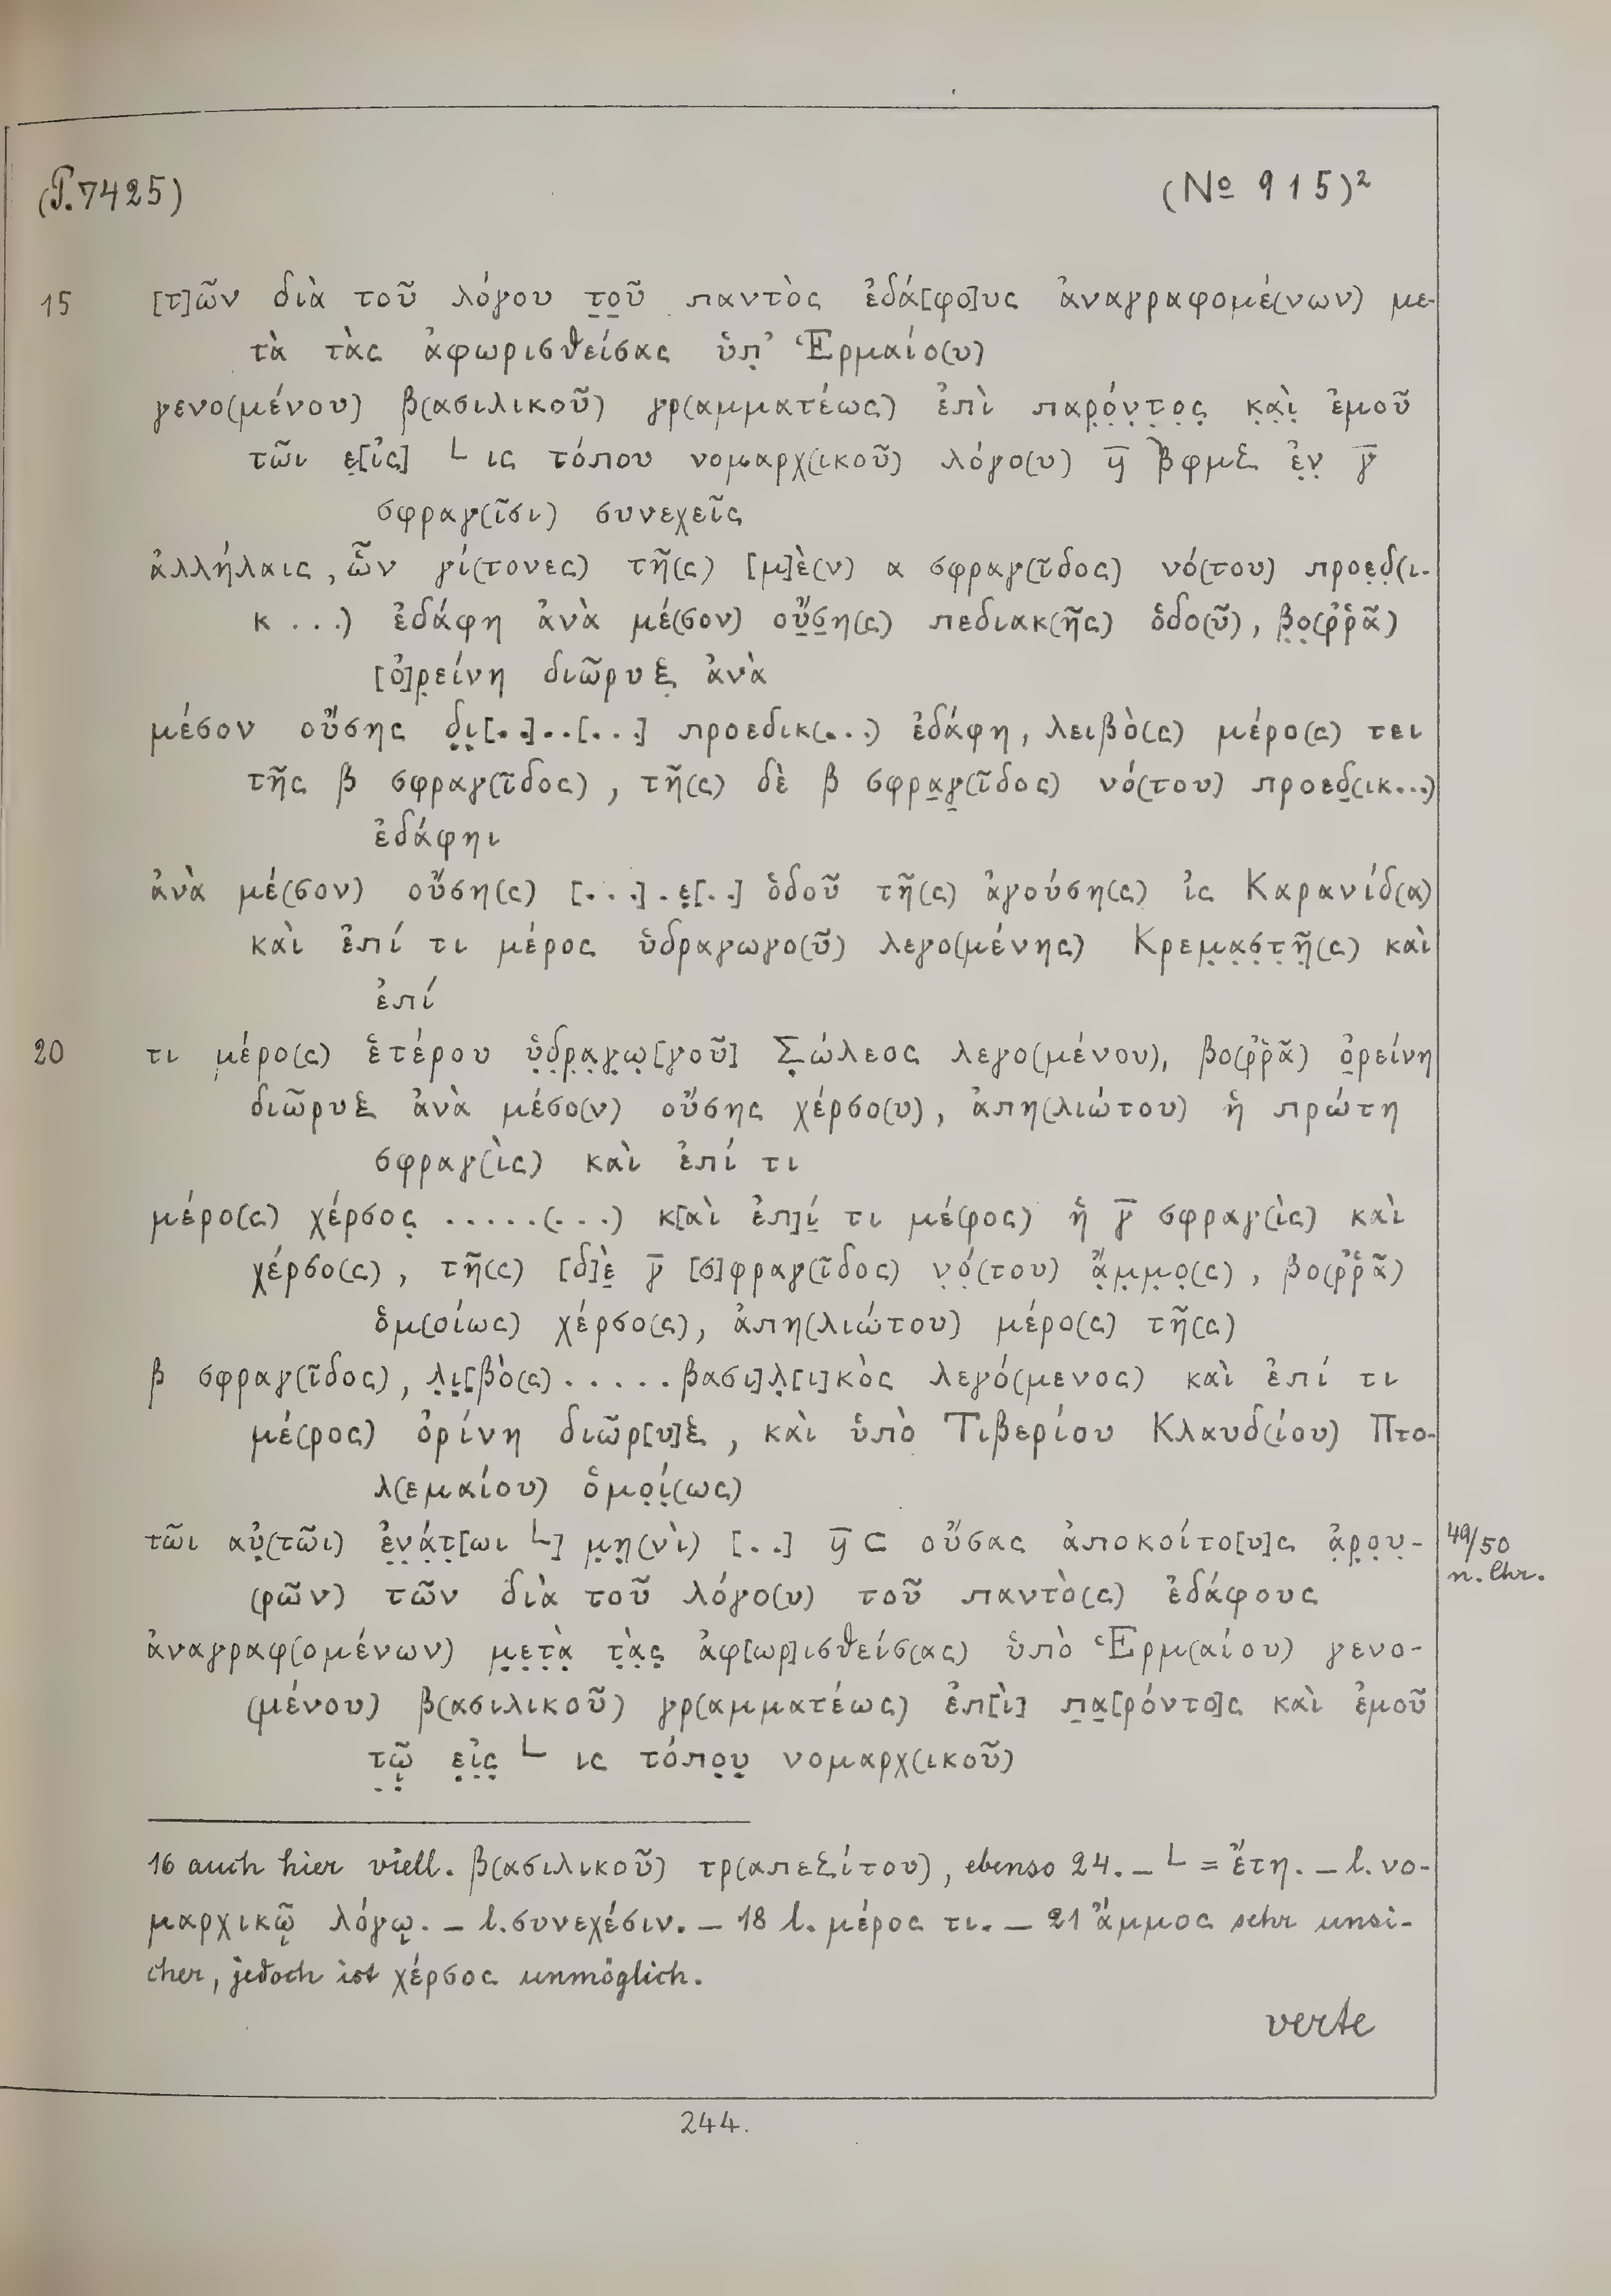 (P. 7425) (№ 915)²
15 [τ]ῶν διὰ τοῦ λόγου τ̣ο̣ῦ παντὸς ἐδά[φο]υς ἀναγραφομέ(νων) με-
τὰ τὰς ἀφωρισθείσας ὑπ̣’ Ἑρμαίο(υ)
γενο(μένου) β(ασιλικοῦ) γρ(αμματέως) ἐπὶ παρ̣ό̣ν̣τ̣ο̣ς̣ κ̣α̣ὶ̣ ἐμοῦ
τῶι ε̣[ἰς] └ ις τόπου νομαρχ(ικοῦ) λόγο(υ) βφμξ ἐ̣ν̣ γ̅
σφραγ(ῖσι) συνεχεῖς
ἀλλήλαις, ὧν γί(τονες) τῆ(ς) [μ]ὲ(ν) α σφραγ(ῖδος) νό(του) προε̣δ̣(ι-
κ...) ἐδάφη ἀνὰ μέ(σον) οὔ̣σ̣η(ς) πεδιακ(ῆς) ὁδο(ῦ), β̣ο̣(ρρᾶ)
[ὀ]ρ̣είνη διῶρυξ̣ ἀνὰ
μέσον οὔσης δ̣ι̣[..]..[...] προεδικ(...) ἐδάφη, λειβὸ(ς) μέρο(ς) τει
τῆς β σφραγ(ῖδος), τῆ(ς) δὲ β σφρα̣γ̣(ῖδος) νό(του) προεδ̣(ικ...)
ἐδάφηι
ἀνὰ μέ(σον) οὔση(ς) [...].ε̣[..] ὁδοῦ τῆ(ς) ἀγούση(ς) ἰς Καρανίδ(α)
καὶ ἐπί τι μέρος ὑδραγωγο(ῦ) λεγο(μένης) Κρεμ̣α̣σ̣τ̣ῆ̣(ς) καὶ
ἐπί
20 τι μέρο(ς) ἑτέρου ὑ̣δ̣ρ̣α̣γ̣ω̣[γοῦ] Σ̣ώλεος λεγο(μένου), βο(ρρᾶ) ὀ̣ρείνη
διῶρυξ ἀνὰ μέσο(ν) οὔσης χέρσο(υ), ἀπη(λιώτου) ἡ πρώτη
σφραγ(ὶς) καὶ ἐπί τι
μέρο(ς) χέρσος̣ .....(...) κ[αὶ ἐπ]ί̣ τι μέ(ρος) ἡ γ̅ σφραγ(ὶς) καὶ
χέρσο(ς), τῆ(ς) [δ]ὲ̣ γ̅ [σ]φραγ(ῖδος) ν̣ό̣(του) ἄ̣μ̣μ̣ο̣(ς), βο(ρρᾶ)
ὁμ(οίως) χέρσο(ς), ἀπη(λιώτου) μέρο(ς) τῆ(ς)
β σφραγ(ῖδος), λ̣ι̣[βὸ(ς).....βασι]λ̣[ι]κὸς λεγό(μενος) καὶ ἐπί τι
μέ(ρος) ὀρίνη διῶρ[υ]ξ, καὶ ὑπὸ Τιβερίου Κλαυδ(ίου) Πτο-
λ(εμαίου) ὁμο̣ί̣(ως)
τῶι αὐ̣(τῶι) ἐ̣ν̣ά̣τ̣[ωι └] μ̣η̣(νὶ) [..] οὔσας ἀποκοίτο[υ]ς ἀ̣ρ̣ο̣υ̣- 49/50
(ρῶν) τῶν διὰ τοῦ λόγο(υ) τοῦ παντὸ(ς) ἐδάφους n. Chr.
ἀναγραφ(ομένων) μ̣ε̣τ̣ὰ̣ τ̣ὰ̣ς̣ ἀφ[ωρ]ισθείσ(ας) ὑπὸ Ἑρμ(αίου) γενο-
(μένου) β(ασιλικοῦ) γρ(αμματέως) ἐπ[ὶ] π̣α̣[ρόντο]ς καὶ ἐμοῦ
τ̣ῷ̣ ε̣ἰ̣ς̣ └ ις τόπο̣υ̣ νομαρχ(ικοῦ)
16 auch hier viell. β(ασιλικοῦ) τρ(απεξίτου), ebenso 24. – └ = ἔτη. – l. νο-
μαρχικῷ λόγῳ. – l. συνεχέσιν. – 18 l. μέρος τι. – 21 ἄμμος sehr unsi-
cher, jedoch ist χέρσος unmöglich.
verte
244.